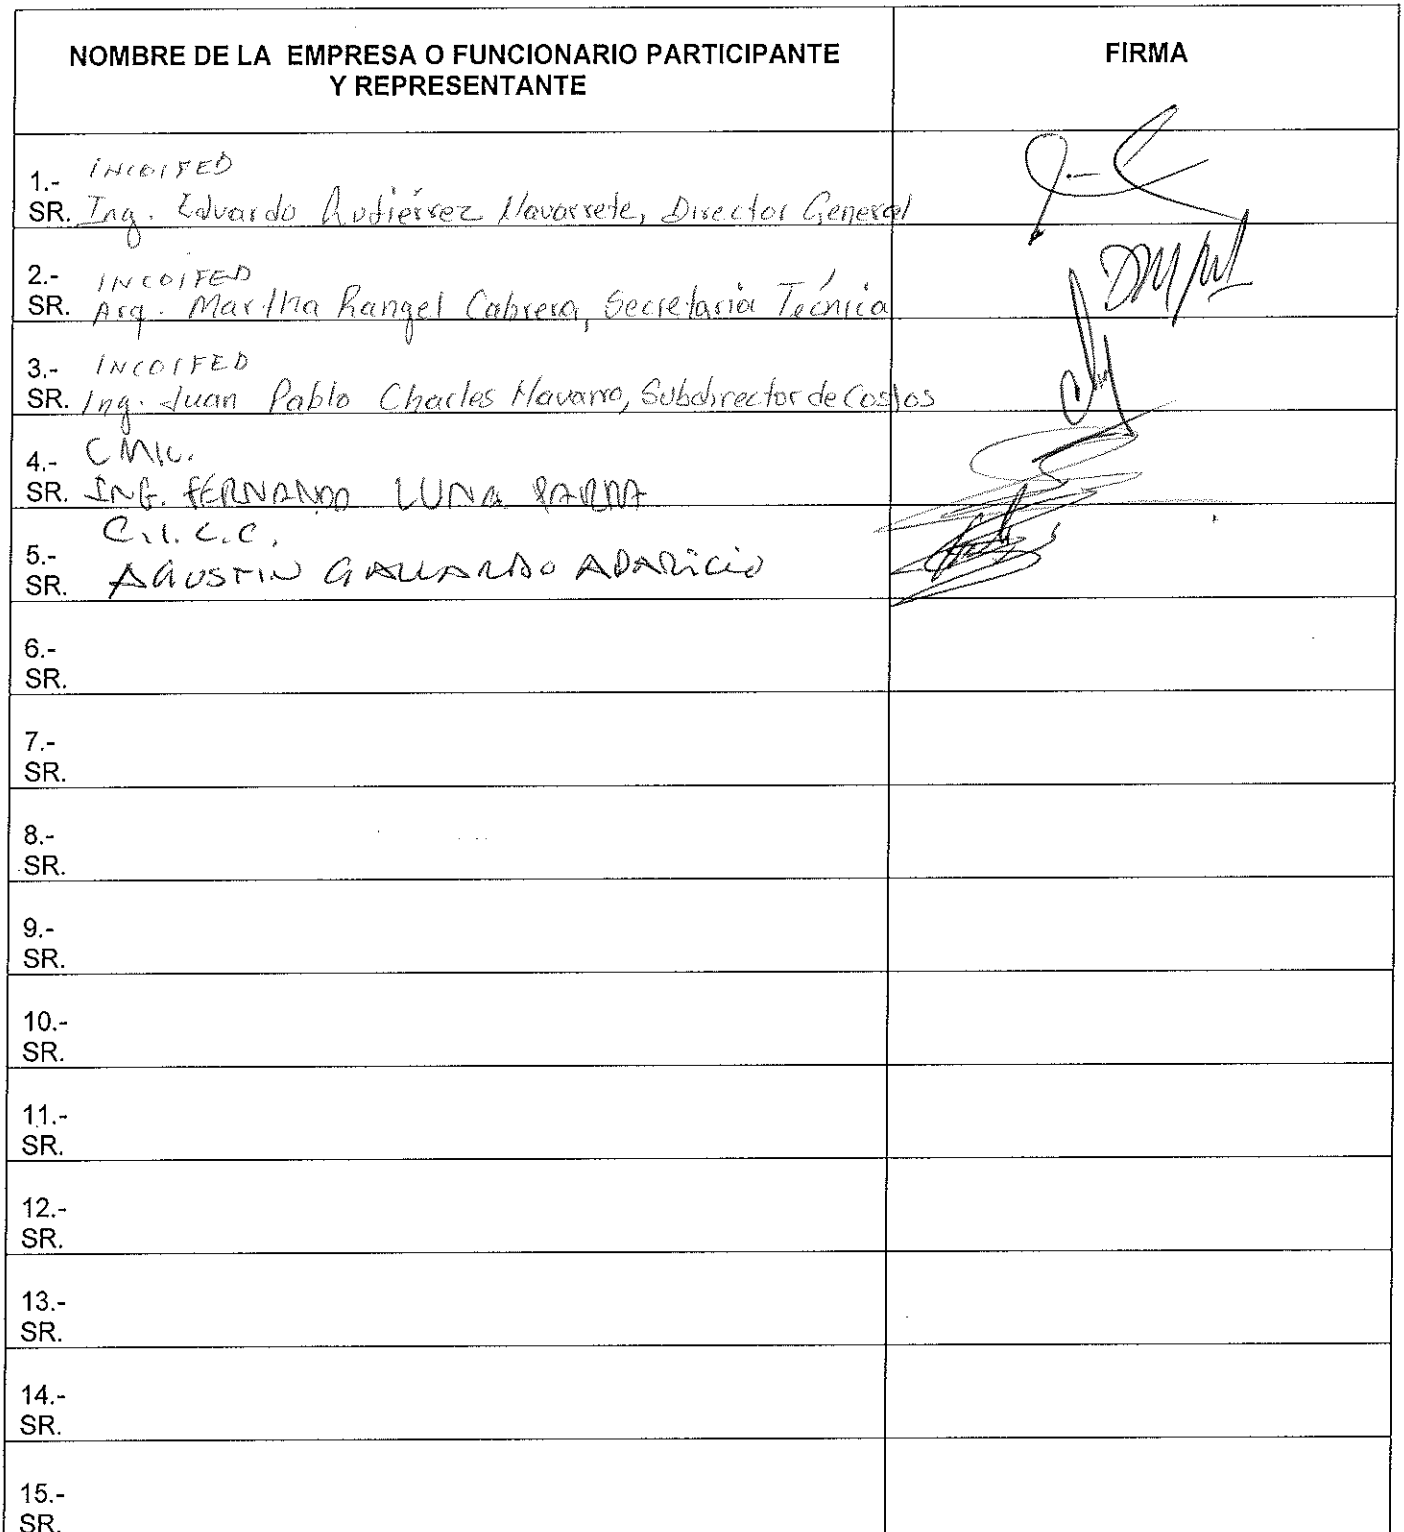 NOMBRE DE LA EMPRESA O FUNCIONARIO PARTICIPANTE
Y REPRESENTANTE
FIRMA
1.- INCOIFED
SR. Ing. Eduardo Gutiérrez Navarrete, Director General
2.- INCOIFED
SR. Arq. Martha Rangel Cabrera, Secretaria Técnica
3.- INCOIFED
SR. Ing. Juan Pablo Charles Navarro, Subdirector de Costos
4.- CMIC.
SR. ING. FERNANDO LUNA PARRA
C.I.C.C.
5.-
SR. AGUSTIN GALLARDO APARICIO
6.-
SR.
7.-
SR.
8.-
SR.
9.-
SR.
10.-
SR.
11.-
SR.
12.-
SR.
13.-
SR.
14.-
SR.
15.-
SR.